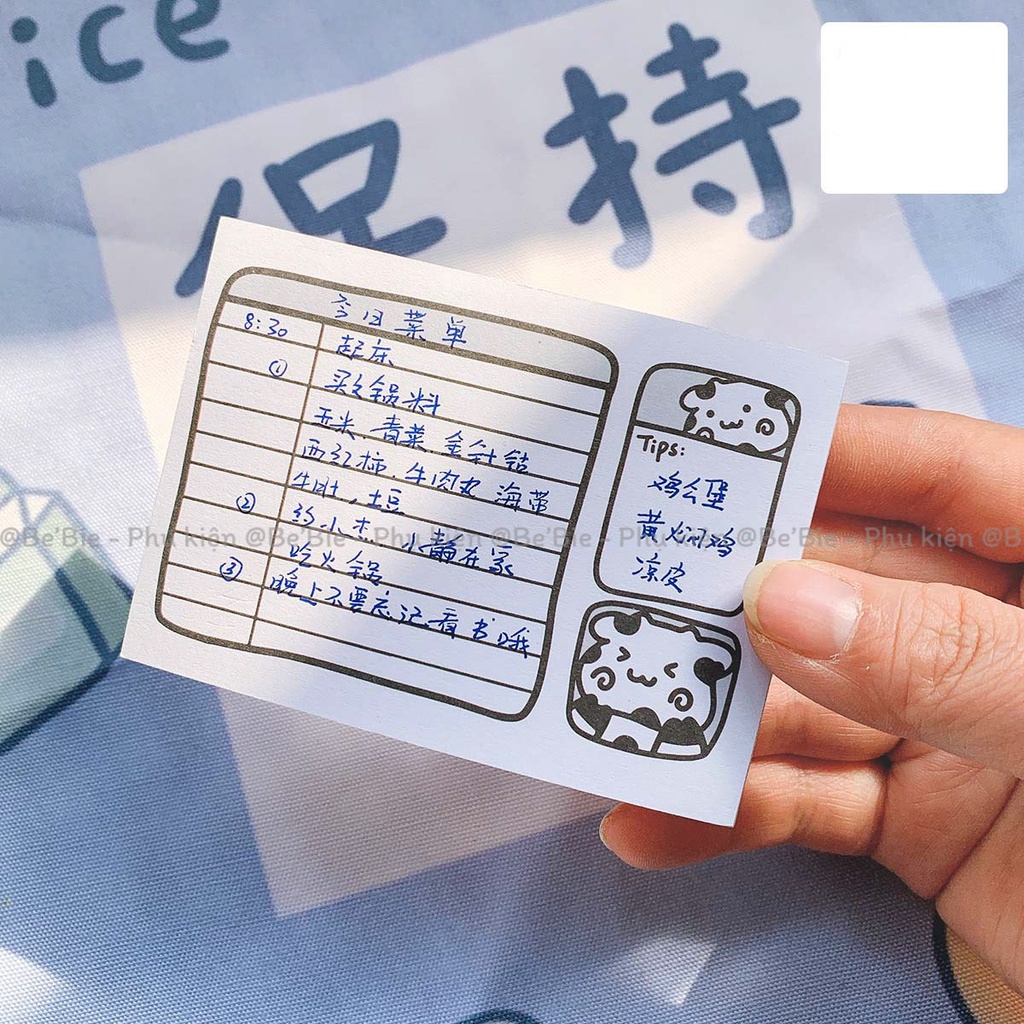 ice
保持
今日菜单
8:30 起床
① 买火锅料
玉米、青菜、金针菇
西红柿、牛肉丸 海带
牛肚、土豆
② 约小杰、小静在家
吃火锅
③ 晚上不要忘记看书哦
Tips:
鸡公堡
黄焖鸡
凉皮
@Be'Bie - Phụ kiện @Be'Bie - Phụ kiện @Be'Bie - Phụ kiện @Be'Bie - Phụ kiện @B